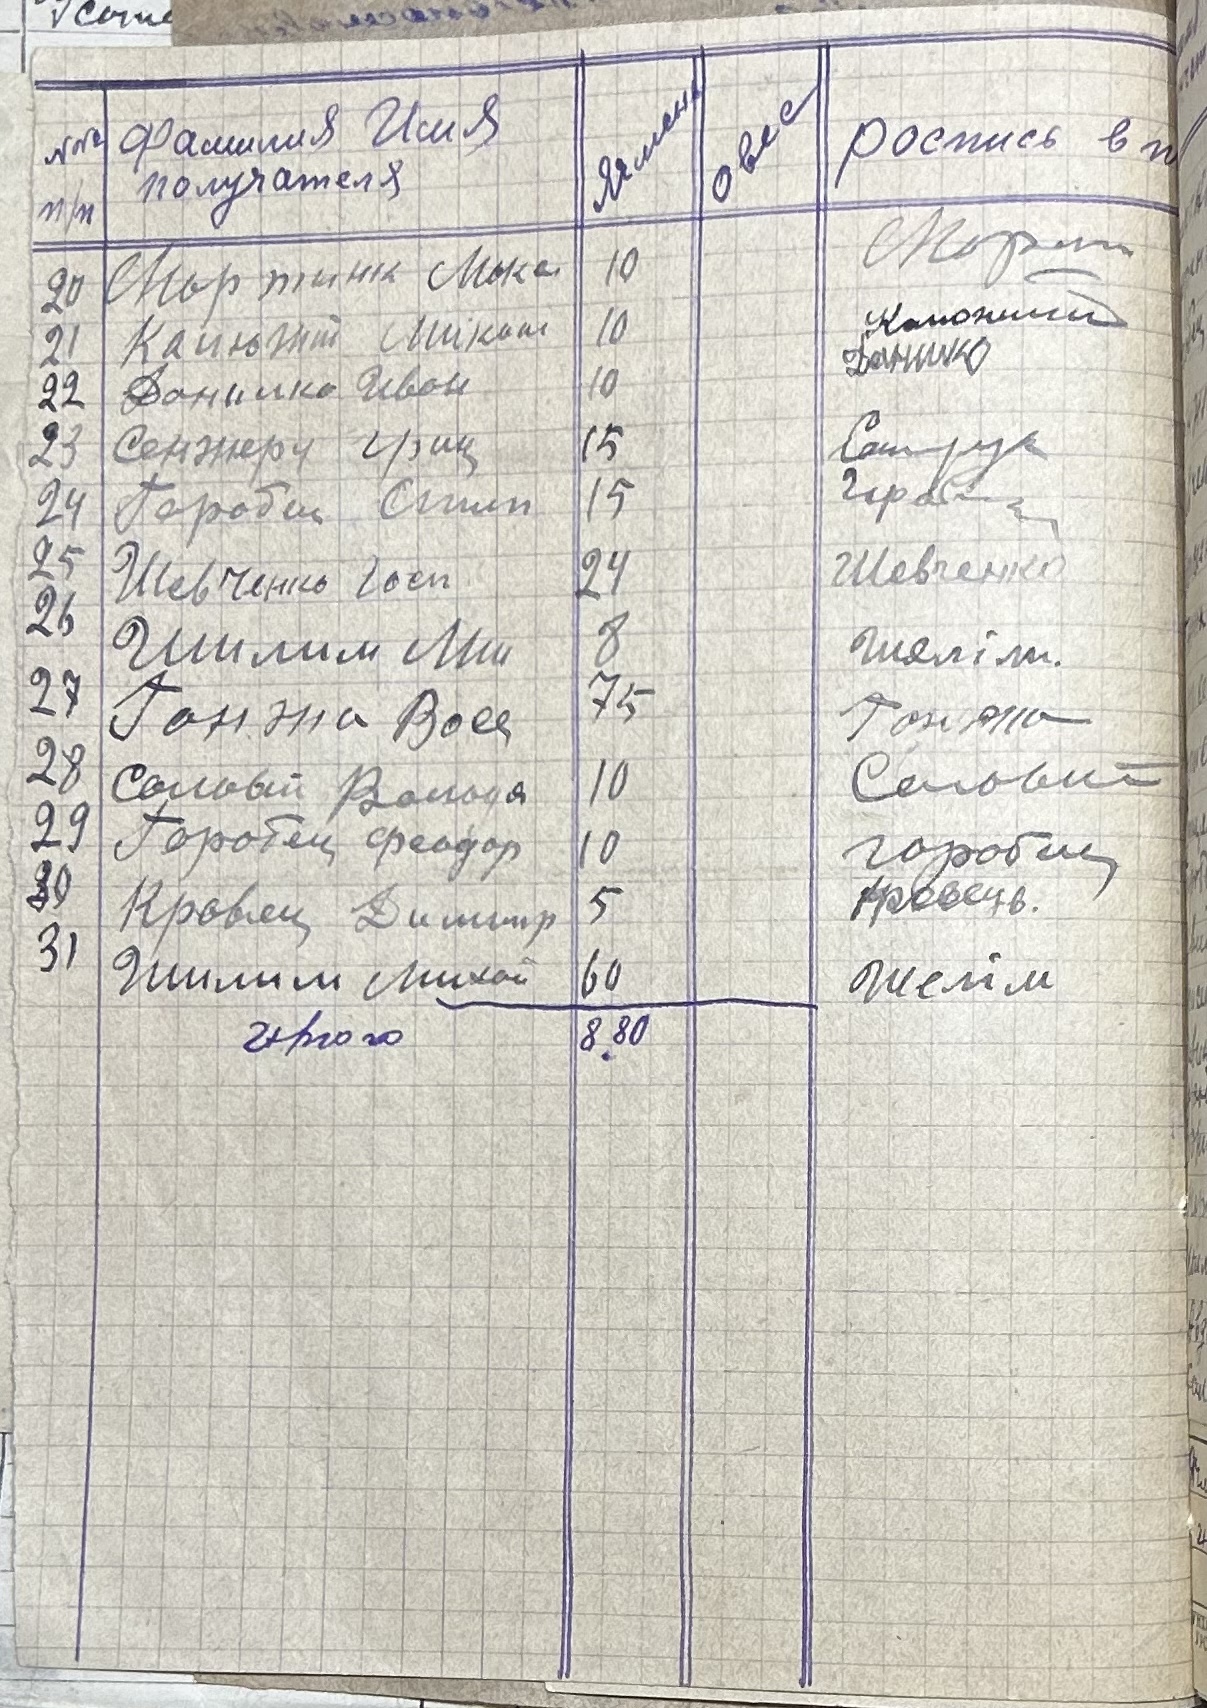 №№ п/п Фамилия Имя получателя Ячмень Овес Роспись в п
20 Мартинк Мика 10
21 Капюжий Микол 10
22 Данилко Иван 10 Данилко
23 Сенжеру Гриц 15
24 Горобец Филип 15
25 Шевченко Іосп 24 Шевченко
26 Шилим Ми 8 Шелім.
27 Ганжа Васц 75 Ганжа
28 Соловий Володя 10 Соловий
29 Горобец Феодор 10 Горобец
30 Кровец Димитр 5 Кровець.
31 Шилим Михай 60 Шелім
Итого 8.80